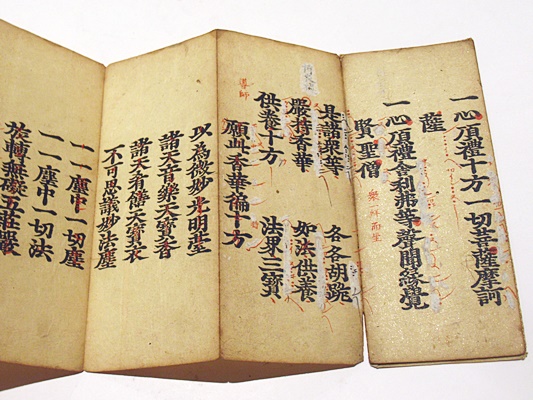 一心頂禮十方一切菩薩摩訶
薩
一心頂禮舍利弗等聲聞緣覺
賢聖僧
是諸衆等 各各胡跪
嚴持香華 如法供養
供養十方 法界三寶
導師
願此香華徧十方
以為微妙光明臺
諸天音樂天寶香
諸天肴饍天寶衣
不可思議妙法塵
一一塵出一切塵
一一塵出一切法
旋轉無礙互莊嚴